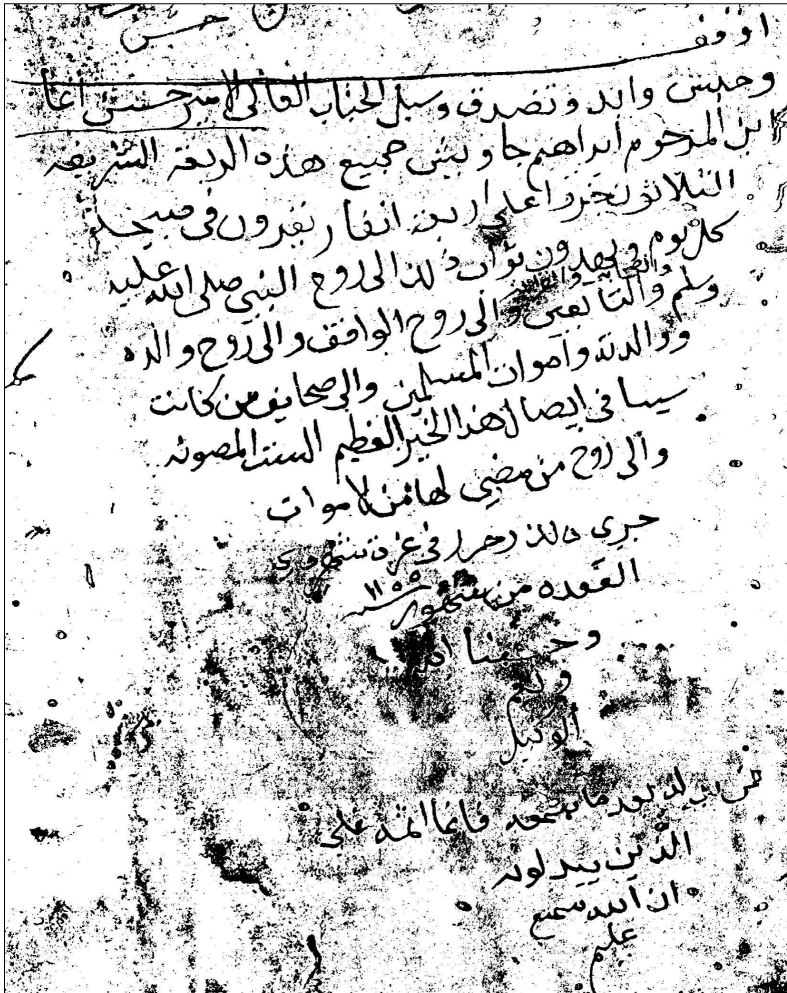 حسن
اوقف
وحبس وابد وتصدق وسبل الجناب العالي الامير حسن اغا
ابن المرحوم ابراهيم جاويش جميع هذه الربعة الشريفه
الثلاثون جزوا على اربعة انفار يقرون في صبيحة
كل يوم ويهدون ثواب ذلك الى روح النبي صلى الله عليه
وسلم والتابعين والى روح الواقف والى روح والده
ووالدته واموات المسلمين والى صحايف من كانت
سببا في ايصال هذا الخير العظيم الست المصونه
والى روح من مضى لها من لاموات
جرى ذلك وحرر في غرة شهر ذي
القعده من شهور سنة
وحسبنا الله
ونعم
الوكيل
فمن بدله بعد ما سمعه فانما اثمه على
الذين يبدلونه
ان الله سميع
عليم